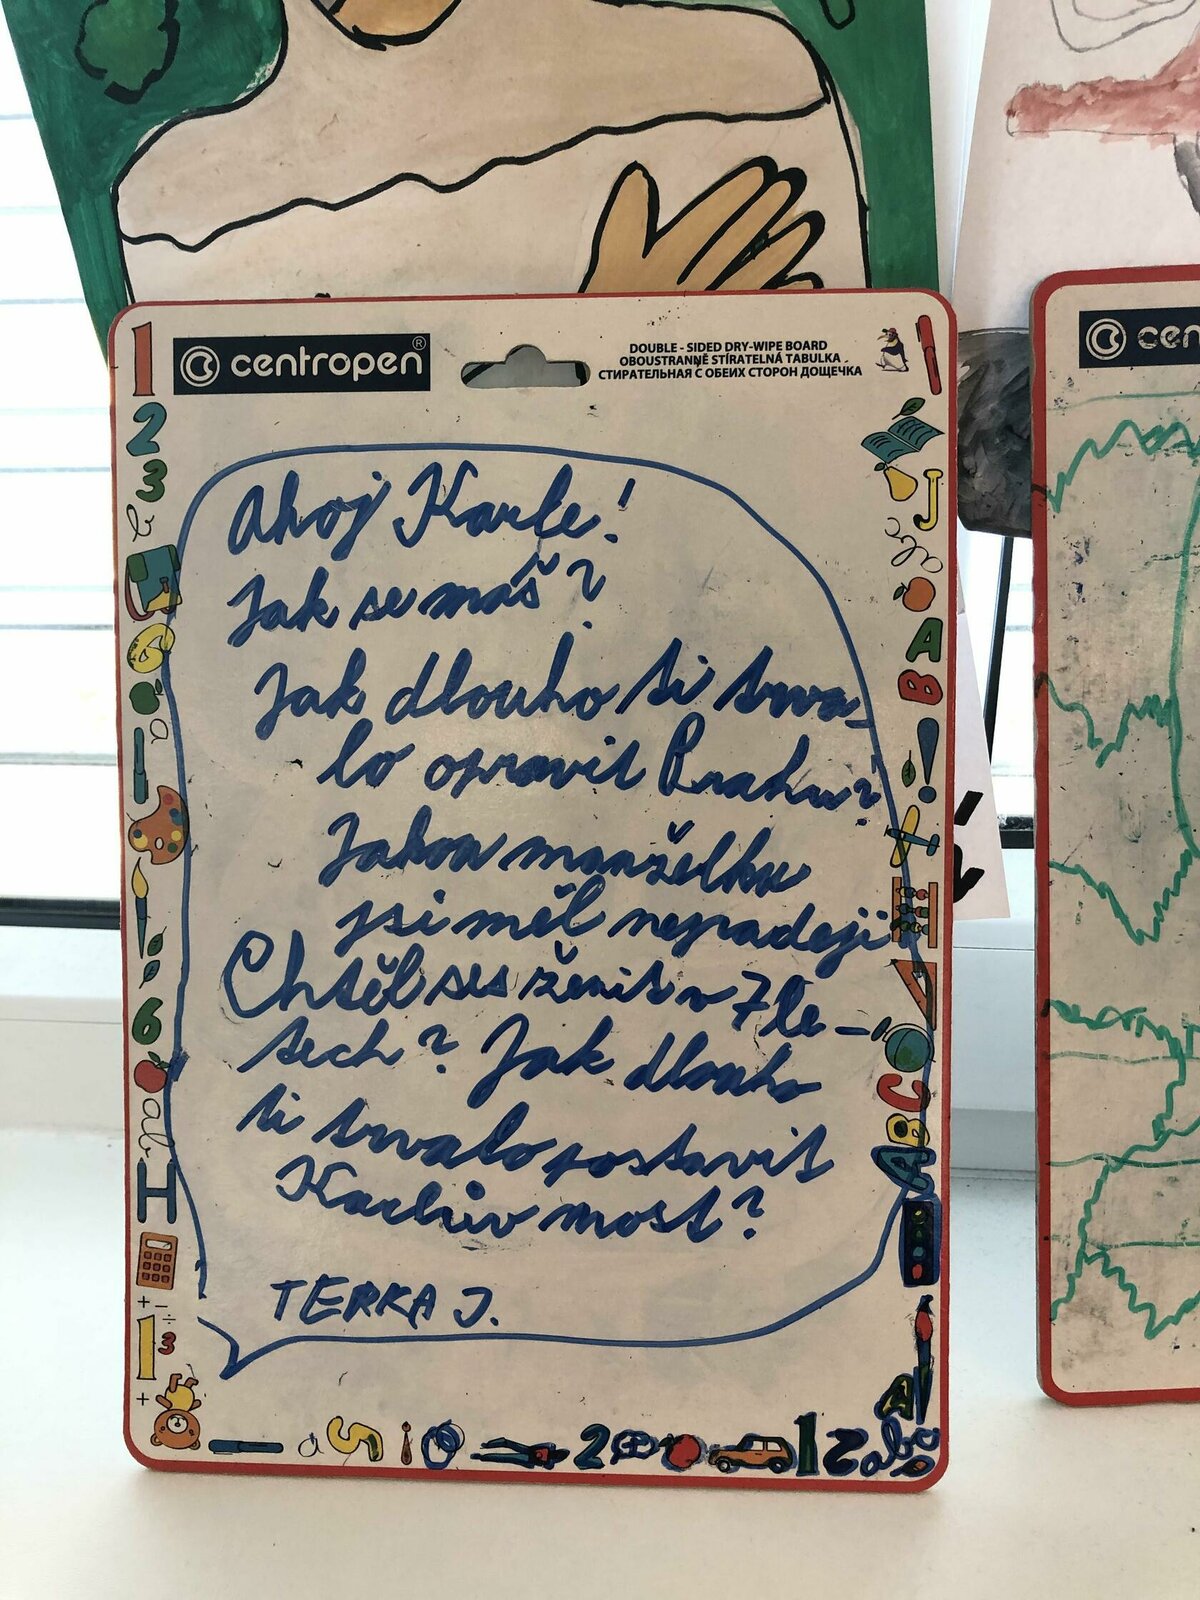 centropen®
DOUBLE - SIDED DRY-WIPE BOARD
OBOUSTRANNĚ STÍRATELNÁ TABULKA
СТИРАТЕЛЬНАЯ С ОБЕИХ СТОРОН ДОЩЕЧКА
Ahoj Karle!
Jak se máš?
Jak dlouho ti trva-
lo opravit Prahu?
Jakou manželku
jsi měl nejradeji
Chtěl ses ženit v 7 le-
tech? Jak dlouho
ti trvalo postavit
Karlův most?
TERKA J.
cen